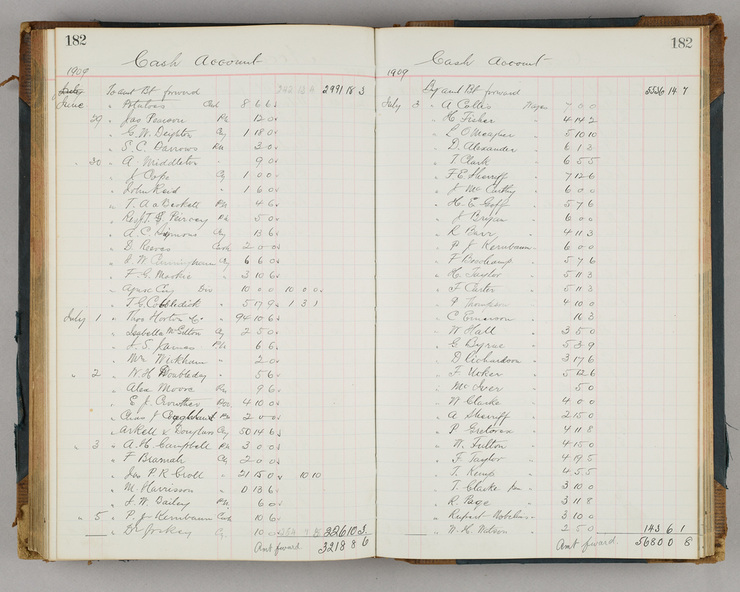 182
Cash Account
1909
To amt Bt forward 2991 18 3
June " Potatoes Cash 8 6 6
29 " Jas Pearson 12 0
" G. W. Deighton Cq 1 18 0
" S. C. Darrows 3 0
" 30 " A. Middleton " 9 0
" J Cope Cq 1 0 0
" John Reid " 1 6 0
" T. A. a Beckett 4 6
" Revd T. G. 5 0
" A C Symons Cq 13 6
" E Reeves Cash 2 0 0
" J W Cunningham Cq 6 6 0
" F. G. Mackie " 3 10 6
" 10 0 0 10 0 0
" T. G. Cobbledick " 5 17 9 1 3 1
July 1 " Thos Horton & Co " 94 10 6
" Isabella McGilton Cq 2 5 0
" J. S. 6 6
" Wm Wickham " 2 0
" 2 " W. H Doubleday " 5 6
" Alex Moore 9 6
" E J. Crowther 4 10 0
" Chas J 2 0 0
" Arkell & Douglas Cq 50 14 6
" 3 " A. H. Campbell 3 0 0
" F Bramah Cq 2 0 0
" Jas P R Croll " 21 15 0 10 10
" M. Harrison " 0 13 6
" J. W. Dailey 6 0
" 5 " P. J. Kernbaum Cash 10 6
" Dr Jorkey Cq 10 0 226 10 3
Amt fward 3218 8 6
182
Cash Account
1909
By amt Bt forward 5536 14 7
July 3 " A Collis Wages 7 0 0
" H Fisher " 4 14 2
" L O'Meagher " 5 10 10
" D. Alexander " 6 1 3
" T Clark " 6 5 5
" F. E. Sherriff " 7 12 6
" J McCarthy " 6 0 0
" H E Goff " 5 7 6
" J Bryan " 6 0 0
" R Barr " 4 11 3
" P J Kernbaum " 6 0 0
" F Bewchamp " 5 7 6
" H Taylor " 5 11 3
" F Carter " 5 11 3
" P Thompson " 4 10 0
" C Emerson " 16 3
" W Hall " 3 5 0
" E Byrne " 5 3 9
" D Richardson " 3 17 6
" F Usker " 5 12 6
" McIver " 5 0
" W Clarke " 4 0 0
" A Sherriff " 2 15 0
" P Gretorex " 4 11 8
" W. Fulton " 4 15 0
" F Taylor " 4 19 5
" T. Kemp " 4 5 5
" T. Clarke Jun " 3 10 0
" R Page " 3 11 8
" Rupert Nobelius " 3 10 0
" W. H. Watson " 2 5 0 143 6 1
Amt fward 5680 0 8